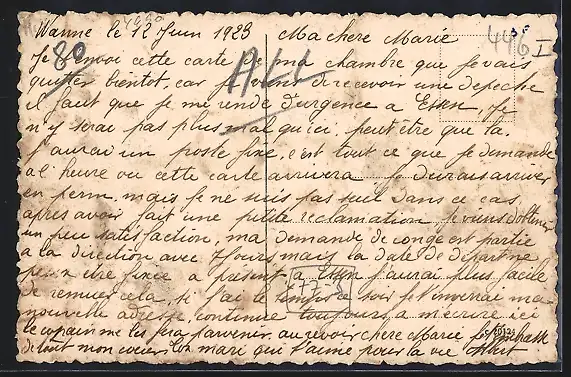 Wanne le 12 Juin 1923 Ma chere Marie
Je t'envoi cette carte de ma chambre que je vais
quitter bientot, car je viens de recevoir une depeche
il faut que je me rende d'urgence a Essen, Je
n'y serai pas plus mal qu'ici, peut être que la
j'aurai un poste fixe, c'est tout ce que je demande
a l'heure ou cette carte arrivera je devrais arriver
en perm, mais je ne suis pas seul dans ce cas
apres avoir fait une petite reclamation, je viens d'obtenir
un peu satisfaction, ma demande de congé est partie
a la direction avec 7 jours mais la date de départ ne
peu etre fixée a présent a Essen j'aurai plus facile
de remuer cela, si j'ai le temps ce soir je t'enverrai ma
nouvelle adresse, continue toujours a m'ecrire ici
le copain me les fera parvenir. au revoir chere Marie je t'embrasse
de tout mon coeur ton mari qui t'aime pour la vie
80
ALL
446 I